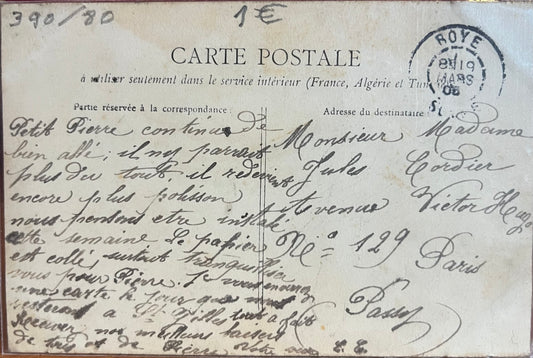 390/80
1€
CARTE POSTALE
à utiliser seulement dans le service intérieur (France, Algérie et Tun
Partie réservée à la correspondance.
Petit Pierre continue de
bien allé; il n'y parrait
plus du tout il redevient
encore plus polisson
nous pensons etre
cette semaine Le papier
est collé surtout
vous pour Pierre. Je vous
une carte le jour que nous
a St tout a fait
recevez nos meilleurs baisers
de tous et de Pierre
Adresse du destinataire
Monsieur Madame
Jules Cordier
Avenue Victor Hugo
No 129
Paris
Passy
ROYE
8H 19
MARS
05